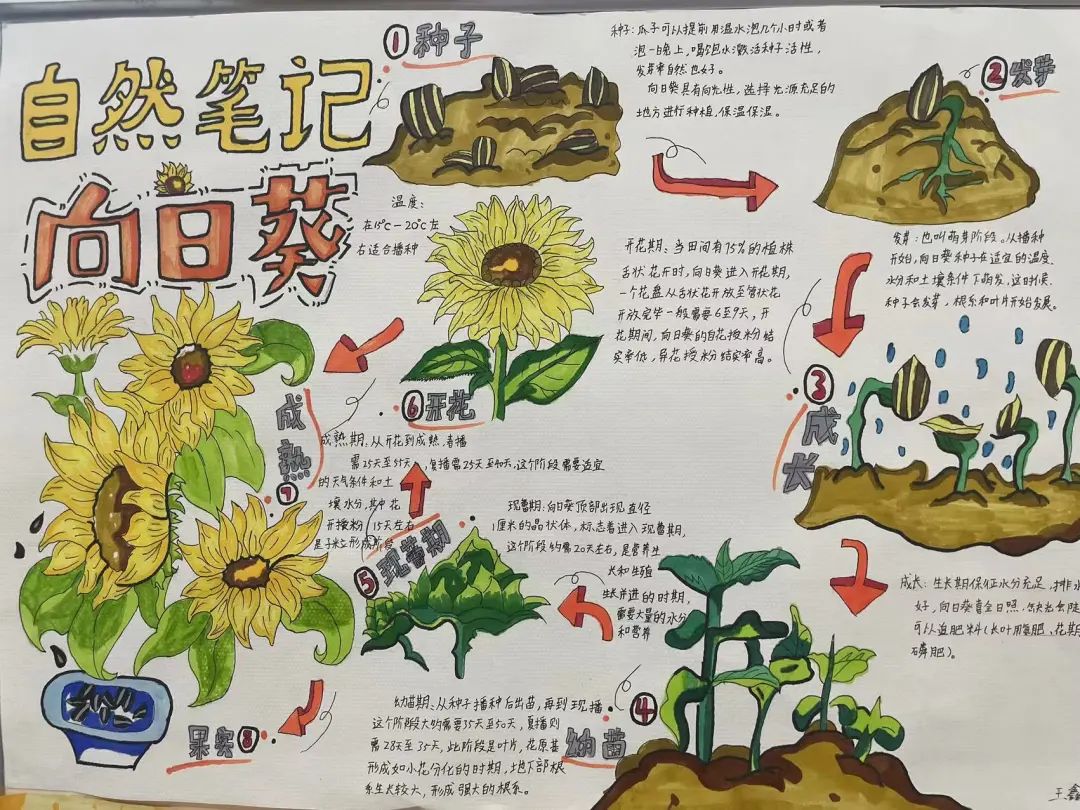 自然笔记
向日葵
① 种子
种子:瓜子可以提前用温水泡几个小时或者
泡一晚上,喝饱水激活种子活性,
发芽率自然也好。
向日葵具有向光性,选择光源充足的
地方进行种植,保温保湿。
温度:
在15℃-20℃左
右适合播种
② 发芽
发芽:也叫萌芽阶段。从播种
开始,向日葵种子在适宜的温度、
水份和土壤条件下萌发,这时候,
种子会发芽,根系和叶片开始发展。
③ 成长
成长:生长期保证水分充足,排水
好,向日葵喜全日照,
可以追肥料(长叶用氮肥、花期
磷肥)。
④ 幼苗
幼苗期:从种子播种后出苗,再到现播
这个阶段大约需要35天至50天,夏播则
需28天至35天,此阶段是叶片,花原基
形成如小花分化的时期,地下部根
系生长较大,形成强大的根系。
⑤ 现蕾期
现蕾期:向日葵顶部出现直径
1厘米的晶状体,标志着进入现蕾期,
这个阶段约需20天左右,是营养生
长和生殖
生长并进的时期,
需要大量的水分
和营养
⑥ 开花
开花期:当田间有75%的植株
舌状花开时,向日葵进入开花期,
一个花盘从舌状花开放至管状花
开放完毕一般需要6至9天,开
花期间,向日葵的自花授粉结
实率低,异花授粉结实率高。
成熟 ⑦
成熟期:从开花到成熟,春播
需25天至55天,夏播需25天至40天,这个阶段需要适宜
的天气条件和土
壤水分,其中花
开授粉15天左右
是子粒形成阶段
果实 ⑧
王鑫